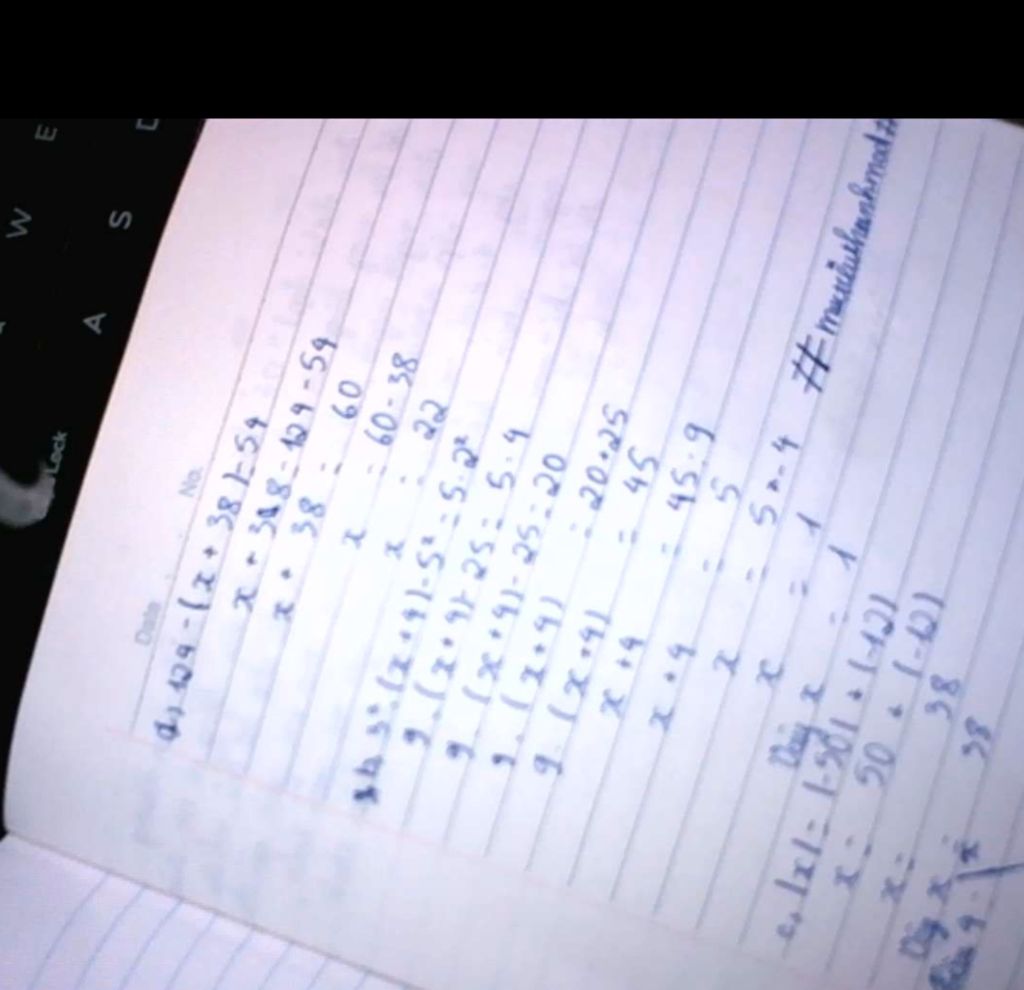 E
W
S
A
Lock
Date
No.
a, 129 - (x + 38) = 54
x + 38 = 129 - 54
x + 38 = 60
x = 60 - 38
x = 22
b, 3². (x + 4) - 5² = 5. 2²
9. (x + 4) - 25 = 5. 4
9. (x + 4) - 25 = 20
9. (x + 4) = 20 + 25
9. (x + 4) = 45
x + 4 = 45 : 9
x + 4 = 5
x = 5 - 4
x = 1
Vậy x = 1
#
c, |x| = |-50| + (-12)
x = 50 + (-12)
x = 38
Vậy x = 38